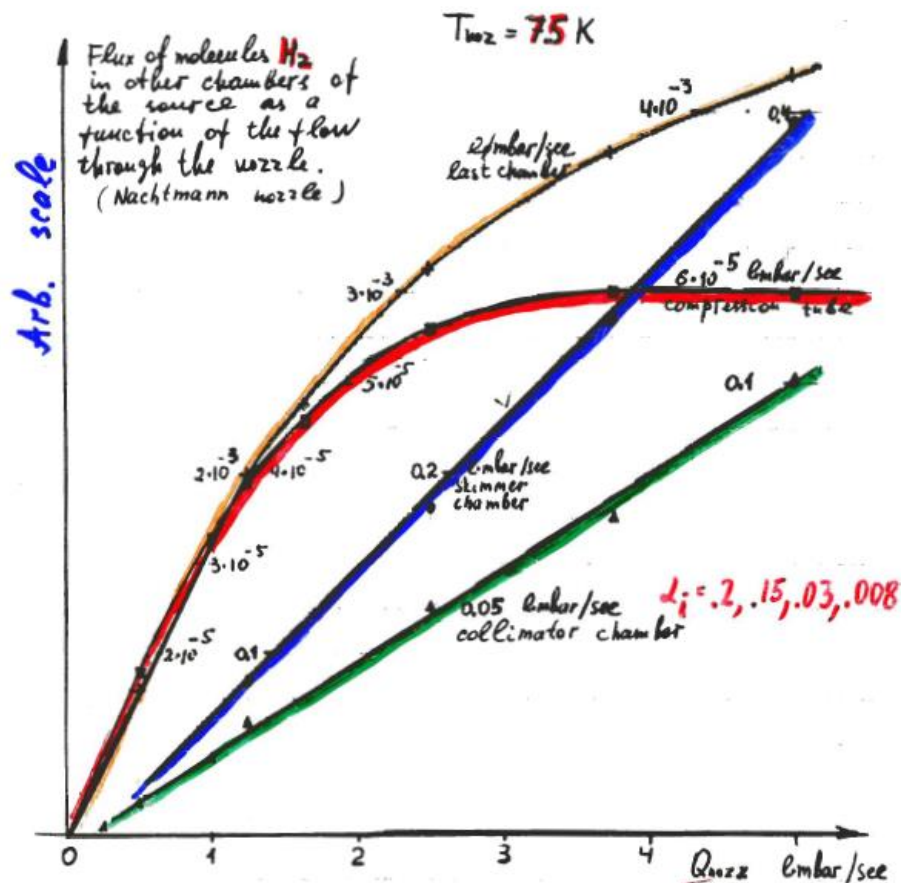 T_noz = 7.5 K
Flux of molecules H₂
in other chambers of
the source as a
function of the flow
through the nozzle.
(Nachtmann nozzle)
Arb. scale
4·10⁻³
0,4
l mbar/sec
last chamber
3·10⁻³
6·10⁻⁵ lmbar/sec
compression tube
5·10⁻⁵
0.1
2·10⁻³
4·10⁻⁵
0,2 lmbar/sec
skimmer
chamber
3·10⁻⁵
0,05 lmbar/sec
collimator chamber
α_i = .2, .15, .03, .008
2·10⁻⁵
0,1
0 1 2 3 4
Q_nozz lmbar/sec